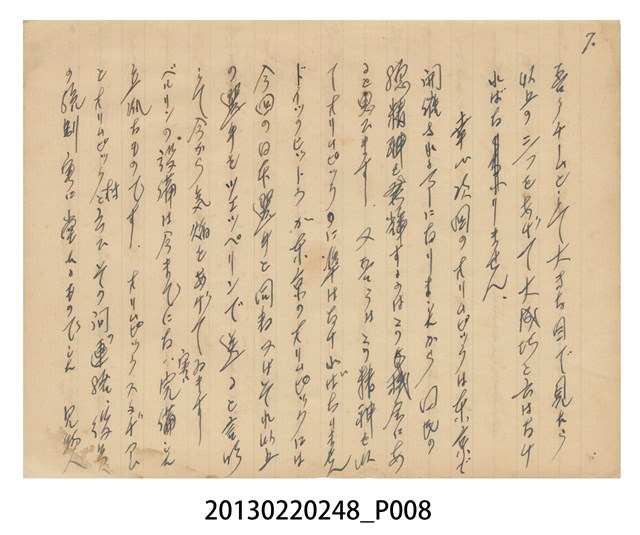 7.
吾々チームとして大きな目で見たら
以上の三つをあげて大成功と云はなけ
ればなりません。
幸ひ次回のオリムピックは東京で
開催される事になりましたから国民の
総精神を発揮するのはこの機会にあ
ると思ひます 又吾々はこの精神を以
て オリムピックに準はなければなりません
ドイツのヒットラーが東京のオリムピックには
今回の日本選手と同数又はそれ以上
の選手をツェッペリンで送ると言明
して今から気焔をあげてゐます
ベルリンの設備は今までにない完備した
立派なものです。オリムピックスタヂアム
とオリムピック村と云ひその間の連絡、役員
の統制 実に堂々たるものでした 見物人
20130220248_P008